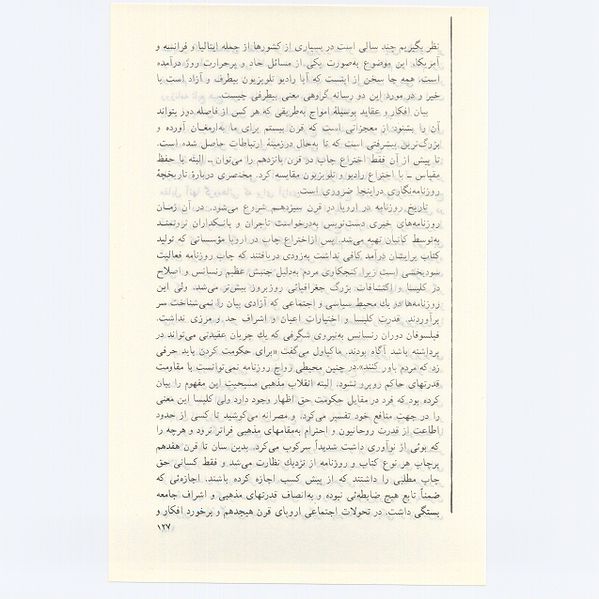 نظر بگیریم چند سالی است در بسیاری از کشورها از جمله ایتالیا و فرانسه و
آمریکا، این موضوع به‌صورت یکی از مسائل حاد و پرحرارت روز درآمده
است. همه جا سخن از اینست که آیا رادیو تلویزیون بیطرف و آزاد است یا
خیر و در مورد این دو رسانه گروهی معنی بیطرفی چیست.
بیان افکار و عقاید بوسیلهٔ امواج به‌طریقی که هر کس از فاصله دور بتواند
آن را بشنود از معجزاتی است که قرن بیستم برای ما به‌ارمغان آورده و
بزرگ‌ترین پیشرفتی است که تا به‌حال درزمینهٔ ارتباطات حاصل شده است.
تا پیش از آن فقط اختراع چاپ در قرن پانزدهم را می‌توان ـ البته با حفظ
مقیاس ـ با اختراع رادیو و تلویزیون مقایسه کرد. مختصری دربارهٔ تاریخچهٔ
روزنامه‌نگاری دراینجا ضروری است.
تاریخ روزنامه در اروپا در قرن سیزدهم شروع می‌شود. در آن زمان
روزنامه‌های خبری دست‌نویس به‌درخواست تاجران و بانکداران ثروتمند
به‌توسط کاتبان تهیه می‌شد. پس ازاختراع چاپ در اروپا مؤسساتی که تولید
کتاب برایشان درآمد کافی نداشت به‌زودی دریافتند که چاپ روزنامه فعالیت
سودبخشی است زیرا کنجکاوی مردم به‌دلیل جنبش عظیم رنسانس و اصلاح
در کلیسا و اکتشافات بزرگ جغرافیائی روزبروز بیش‌تر می‌شد. ولی این
روزنامه‌ها در یك محیط سیاسی و اجتماعی که آزادی بیان را نمی‌شناخت سر
برآوردند. قدرت کلیسا و اختیارات اعیان و اشراف حد و مرزی نداشت.
فیلسوفان دوران رنسانس به‌نیروی شگرفی که یك جریان عقیدتی می‌تواند در
برداشته باشد آگاه بودند. ماکیاول می‌گفت «برای حکومت کردن باید حرفی
زد که مردم باور کنند». در چنین محیطی رواج روزنامه نمی‌توانست با مقاومت
قدرتهای حاکم روبرو نشود. البته انقلاب مذهبی مسیحیت این مفهوم را بیان
کرده بود که فرد در مقابل حکومت حق اظهار وجود دارد ولی کلیسا این معنی
را در جهت منافع خود تفسیر می‌کرد، و مصرانه می‌کوشید تا کسی از حدود
اطاعت از قدرت روحانیون و احترام به‌مقامهای مذهبی فراتر نرود و هرچه را
که بوئی از نوآوری داشت شدیداً سرکوب می‌کرد. بدین سان تا قرن هفدهم
برچاپ هر نوع کتاب و روزنامه از نزدیك نظارت می‌شد و فقط کسانی حق
چاپ مطلبی را داشتند که از پیش کسب اجازه کرده باشند، اجازه‌ئی که
ضمناً تابع هیچ ضابطه‌ئی نبوده و به‌انصاف قدرتهای مذهبی و اشراف جامعه
بستگی داشت. در تحولات اجتماعی اروپای قرن هیجدهم و برخورد افکار و
۱۲۷